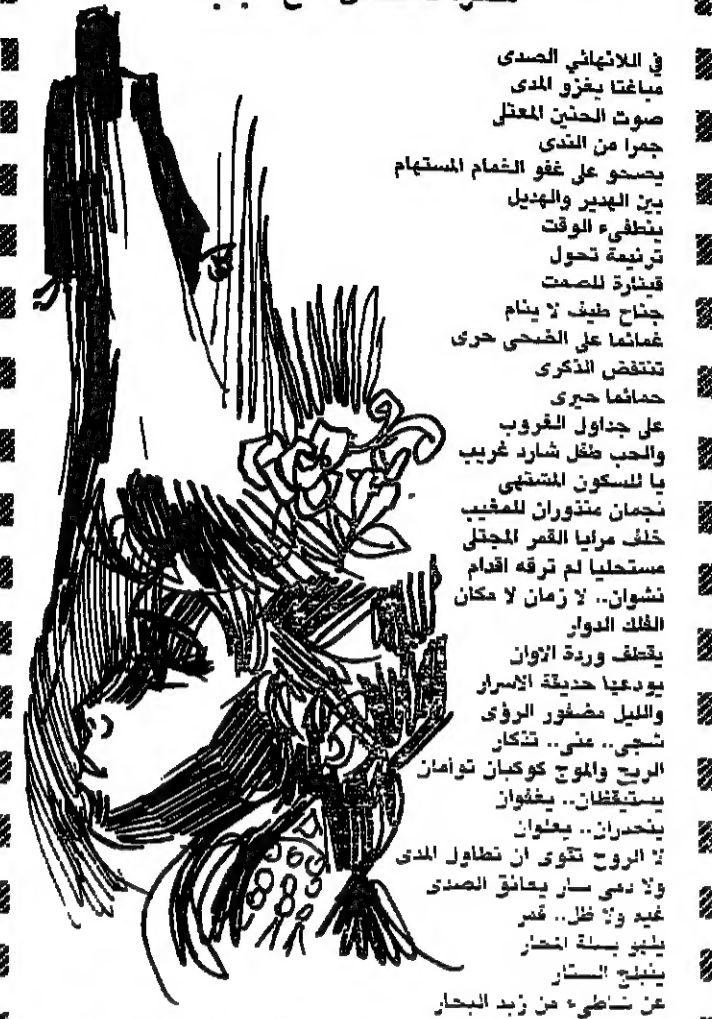 في اللانهائي الصدى
مباغتا يغزو المدى
صوت الحنين المعتلي
جمرا من الندى
يصحو على غفو الغمام المستهام
بين الهدير والهديل
ينطفيء الوقت
ترنيمة تحول
قيثارة للصمت
جناح طيف لا ينام
غمائما على الضحى حرى
تنتفض الذكرى
حمائما حيرى
على جداول الغروب
والحب طفل شارد غريب
يا للسكون المشتهى
نجمان منذوران للمغيب
خلف مرايا القمر المجتلى
مستحليا لم ترقه اقدام
نشوان.. لا زمان لا مكان
الفلك الدوار
يقطف وردة الاوان
يودعها حديقة الاسرار
والليل مضفور الرؤى
شجى.. عنى.. تذكار
الريح والموج كوكبان توأمان
يستيقظان.. يغفوان
ينحدران.. يعلوان
لا الروح تقوى ان تطاول المدى
ولا دمى سار يعانق الصدى
غيد ولا ظل.. قمر
يلهو بسلة المحار
ينبلج الستار
عن شاطيء من زبد البحار